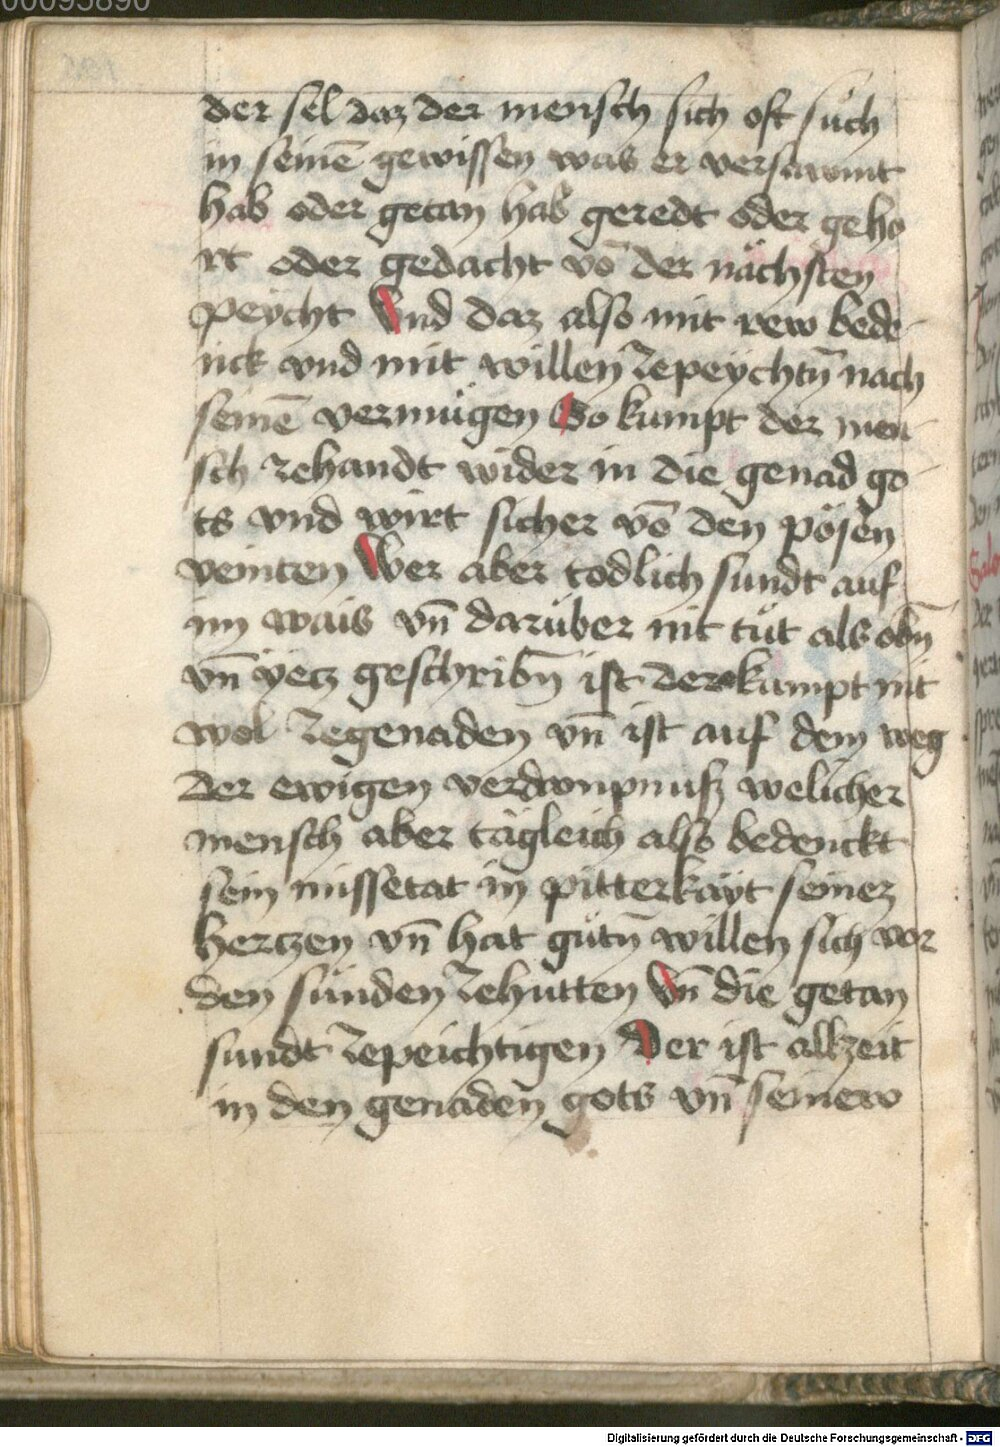 00095890
der sel daz der mensch sich oft such
in seinē gewissen was er versawmt
hab oder getan hab geredt oder geho
rt oder gedacht vō der nächsten
peycht Vnd daz also mit rew bede
nck vnd mit willen zepeychtn̄ nach
seinē vermügen So kumpt der men
sch zehandt wider in die genad go
ts vnd wirt sicher vō den pösen
veinten Wer aber todlich sundt auf
im wais vn̄ darüber nit tüt als obn̄
vn̄ yecz geschribn̄ ist der kumpt nit
wol zegenaden vn̄ ist auf dem weg
der ewigen verdampnuß welicher
mensch aber tägleich also bedenckt
sein missetat in pitterkäyt seinez
herczen vn̄ hat gütn̄ willen sich vor
den sünden zehütten Vn̄ die getan
sundt zepeichtigen Der ist allzeit
in den genaden gots vn̄ seinew
Digitalisierung gefördert durch die Deutsche Forschungsgemeinschaft - DFG